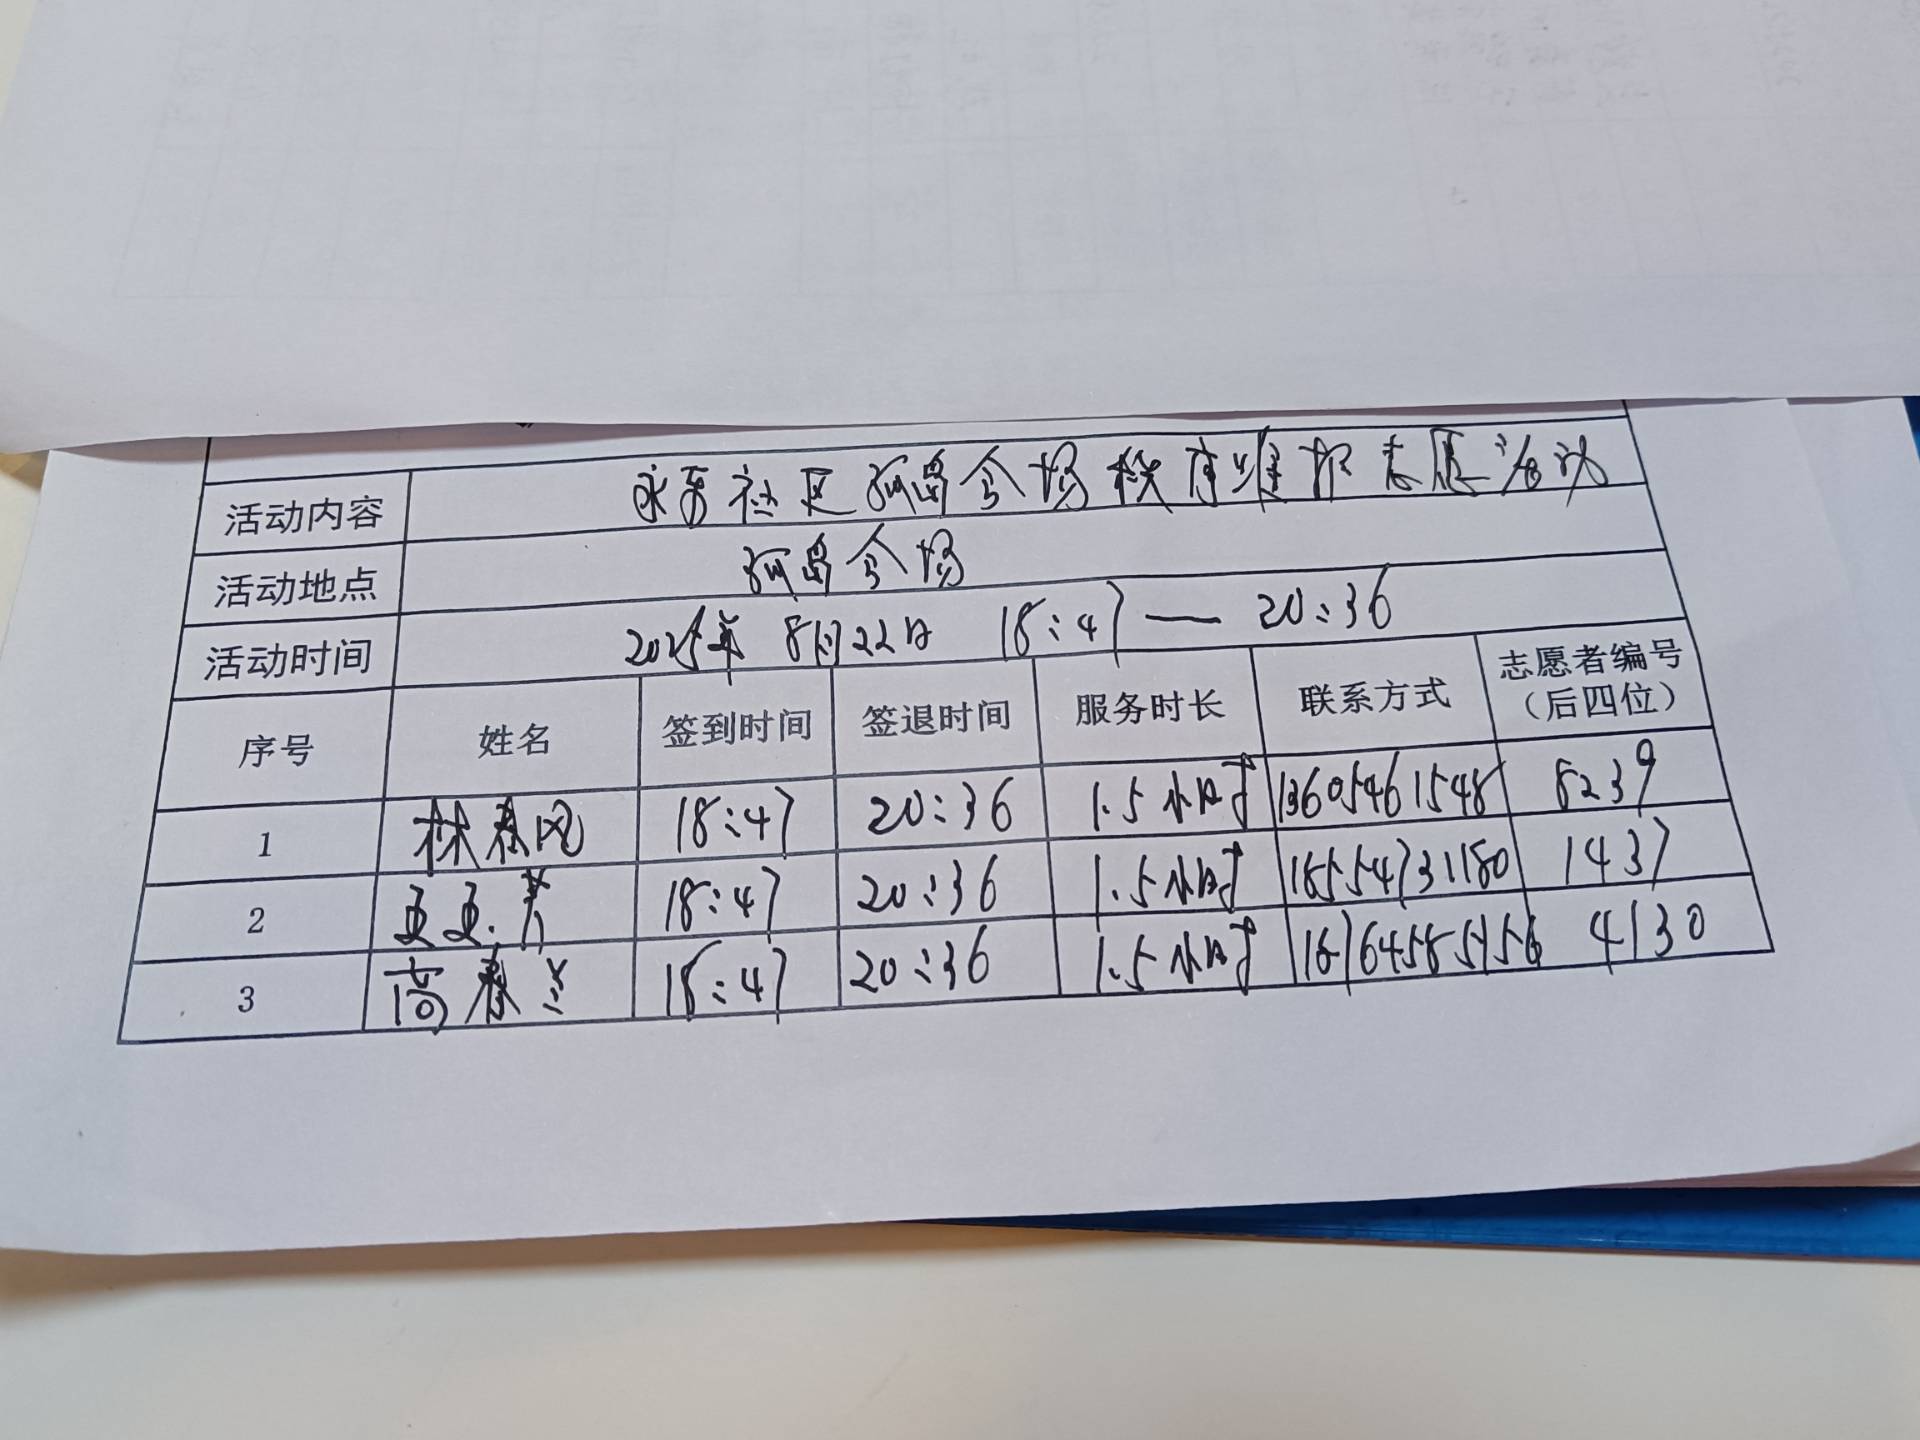 活动内容 永安社区孤岛会场秩序维护志愿活动
活动地点 孤岛会场
活动时间 2025年 8月22日 18:47 — 20:36
序号 姓名 签到时间 签退时间 服务时长 联系方式 志愿者编号（后四位）
1 林春风 18:47 20:36 1.5小时 13605461548 8239
2 18:47 20:36 1.5小时 18554731180 1437
3 高春兰 18:47 20:36 1.5小时 4130